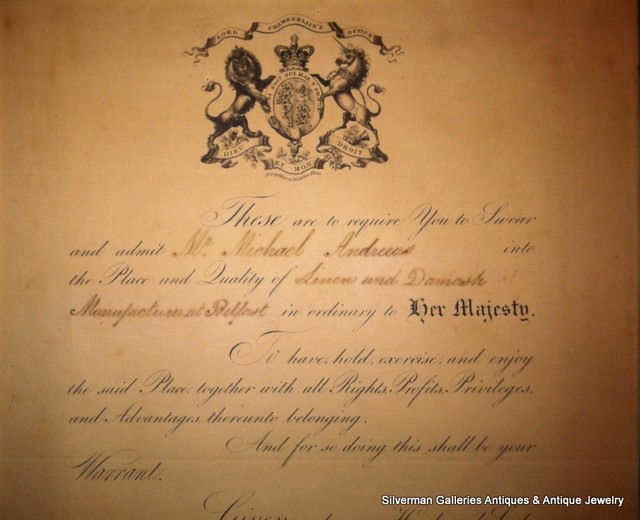 LORD CHAMBERLAIN'S OFFICE
HONI SOIT QUI MAL Y PENSE
DIEU ET MON DROIT
These are to require You to Swear
and admit Mr. Michael Andrews into
the Place and Quality of Linen and Damask
Manufacturer at Belfast in ordinary to Her Majesty.
To have, hold, exercise, and enjoy
the said Place, together with all Rights, Profits, Privileges,
and Advantages, thereunto belonging.
And for so doing this shall be your
Warrant.
Given
Silverman Galleries Antiques & Antique Jewelry